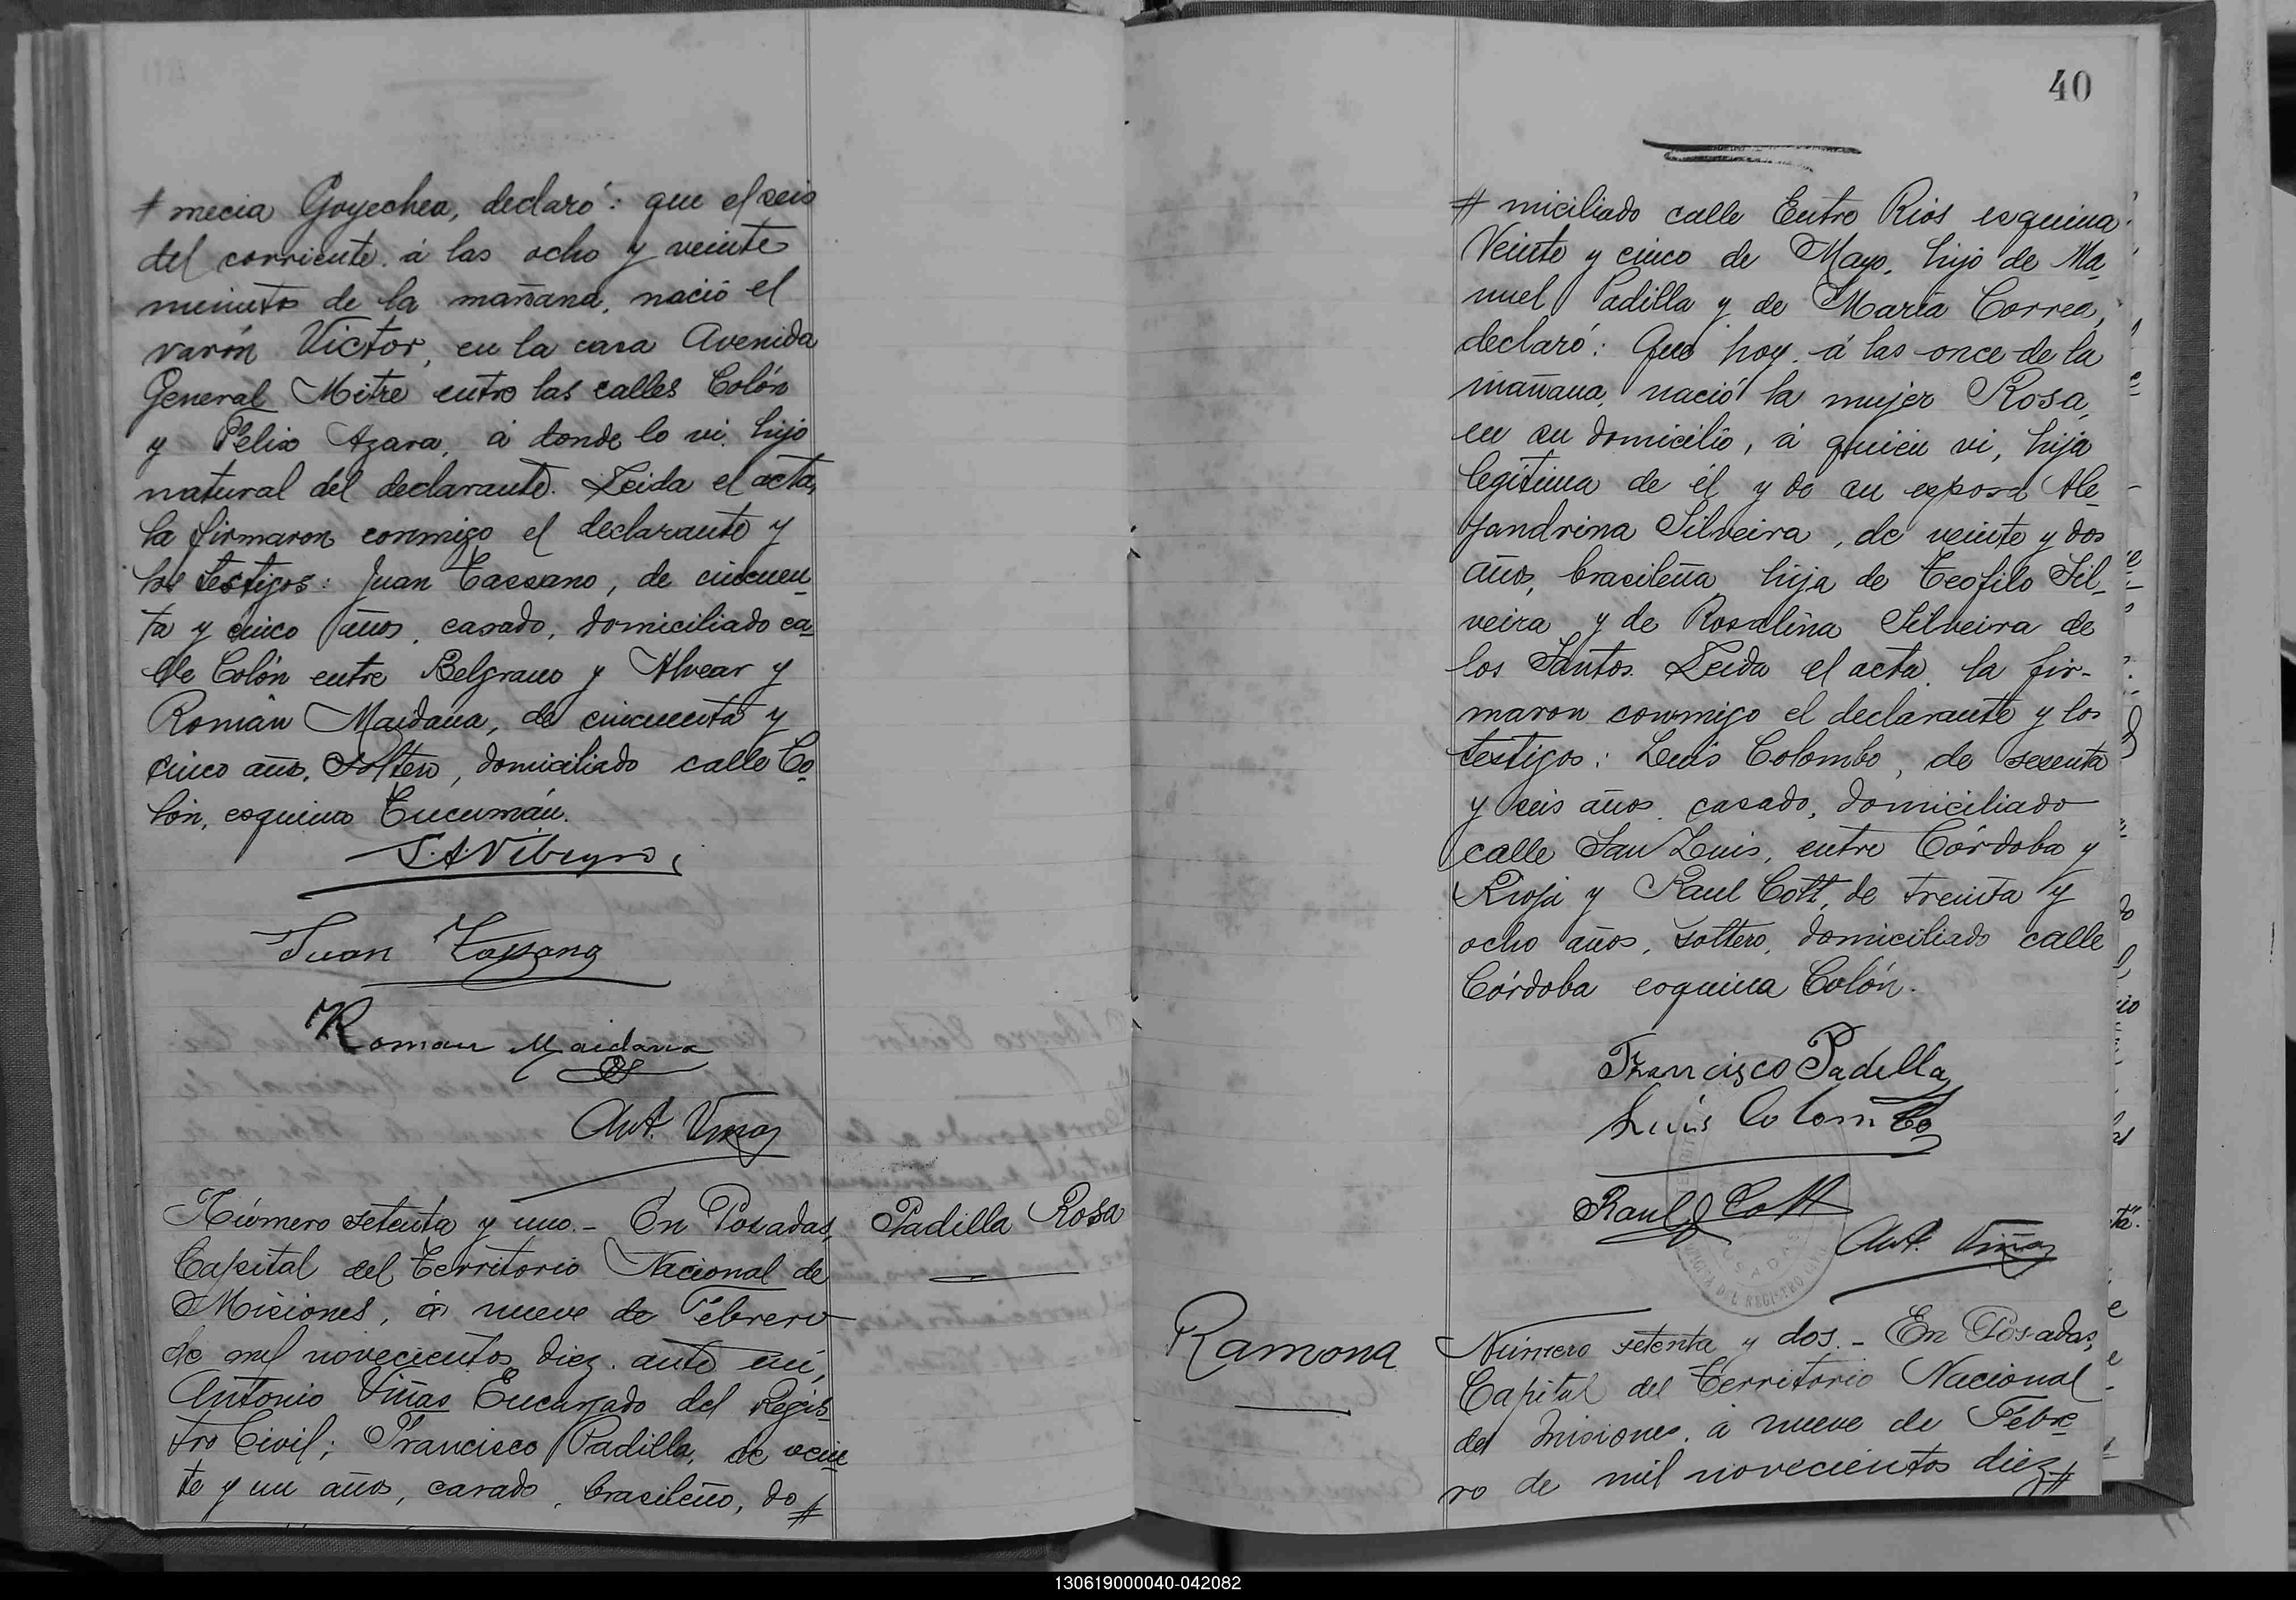 # mecia Goyechea, declaró: que el seis
del corriente á las ocho y veinte
minutos de la mañana, nació el
varón Victor, en la casa Avenida
General Mitre entre las calles Colón
y Felix Azara, á donde lo vi. hijo
natural del declarante. Leida el acta,
la firmaron conmigo el declarante y
los testigos: Juan Cassano, de cincuen
ta y cinco años, casado, domiciliado ca
lle Colón entre Belgrano y Alvear y
Román Maidana, de cincuenta y
cinco años, soltero, domiciliado calle Co
lón, esquina Tucumán.
Juan
Roman Maidana
Ant. Viñas
Número setenta y uno.- En Posadas,
Capital del Territorio Nacional de
Misiones, á nueve de Febrero
de mil novecientos diez. ante mí,
Antonio Viñas Encargado del Regis
tro Civil; Francisco Padilla, de vein
te y un años, casado, brasileño, do #
Padilla Rosa
40
# miciliado calle Entre Rios esquina
Veinte y cinco de Mayo, hijo de Ma
nuel Padilla y de María Correa,
declaró: Que hoy á las once de la
mañana, nació la mujer Rosa,
en su domicilio, á quien vi, hija
legítima de él y de su esposa Ale
jandrina Silveira, de veinte y dos
años, brasileña hija de Teofilo Sil-
veira y de Rosalina Silveira de
los Santos. Leida el acta, la fir-
maron conmigo el declarante y los
testigos: Luis Colombo, de sesenta
y seis años, casado, domiciliado
calle San Luis, entre Córdoba y
Rioja y Raul Cott, de treinta y
ocho años, soltero, domiciliado calle
Córdoba esquina Colón.
Francisco Padilla
Luis Colombo
Raul Cott
Ant. Viñas
Ramona
Número setenta y dos.- En Posadas,
Capital del Territorio Nacional
de Misiones, á nueve de Febre
ro de mil novecientos diez #
130619000040-042082